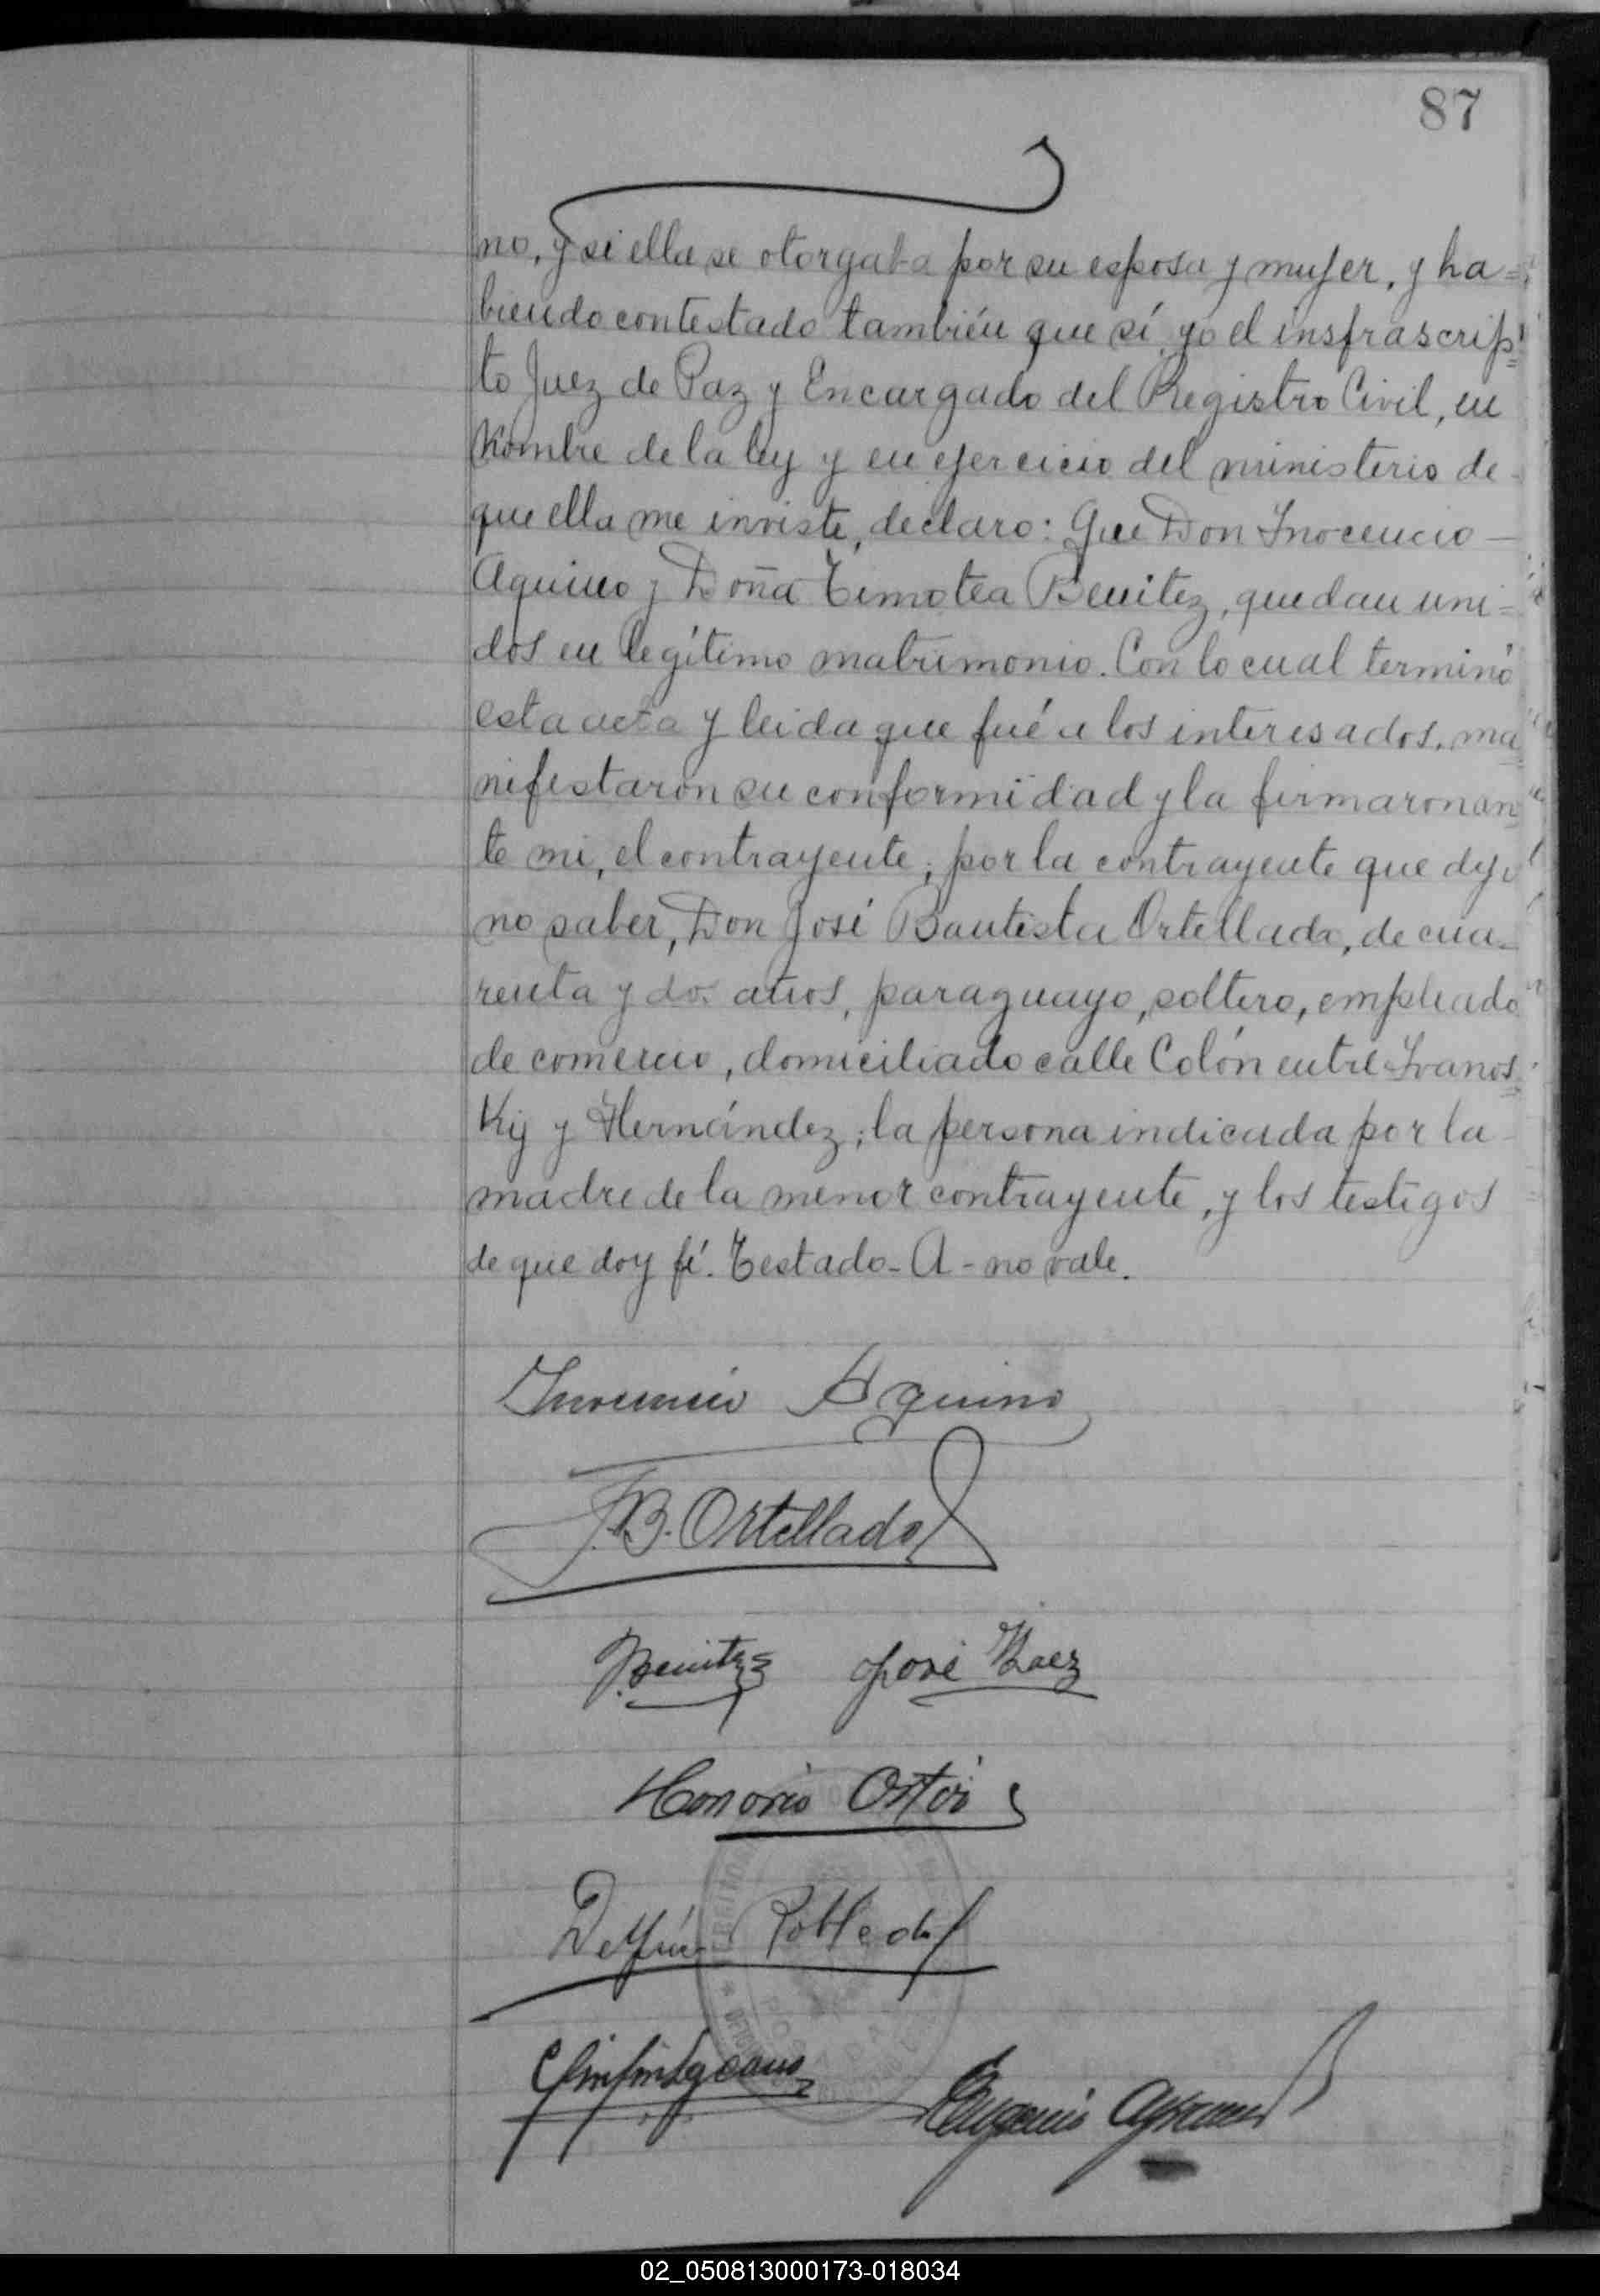 87
no, y si ella se otorgaba por su esposa y mujer, y ha=
biendo contestado también que sí, yo el insfrascrip=
to Juez de Paz y Encargado del Registro Civil, en
nombre de la ley y en ejercicio del ministerio de
que ella me inviste, declaro: Que Don Inocencio —
Aquino y Doña Timotea Benitez, quedan uni=
dos en legítimo matrimonio. Con lo cual terminó
esta acta y leida que fué a los interesados, ma
nifestaron su conformidad y la firmaron an
te mi, el contrayente; por la contrayente que dijo
no saber, Don José Bautista Ortellado, de cua_
renta y dos años, paraguayo, soltero, empleado
de comercio, domiciliado calle Colón entre Ivanos=
Ky y Hernández; la persona indicada por la
madre de la menor contrayente, y los testigos
de que doy fé. Testado - A - no vale.
Inocencio Aquino
J.B. Ortellado
Benitez José Baez
Honorio
Delfín Robledo
Eugenio
02_050813000173-018034